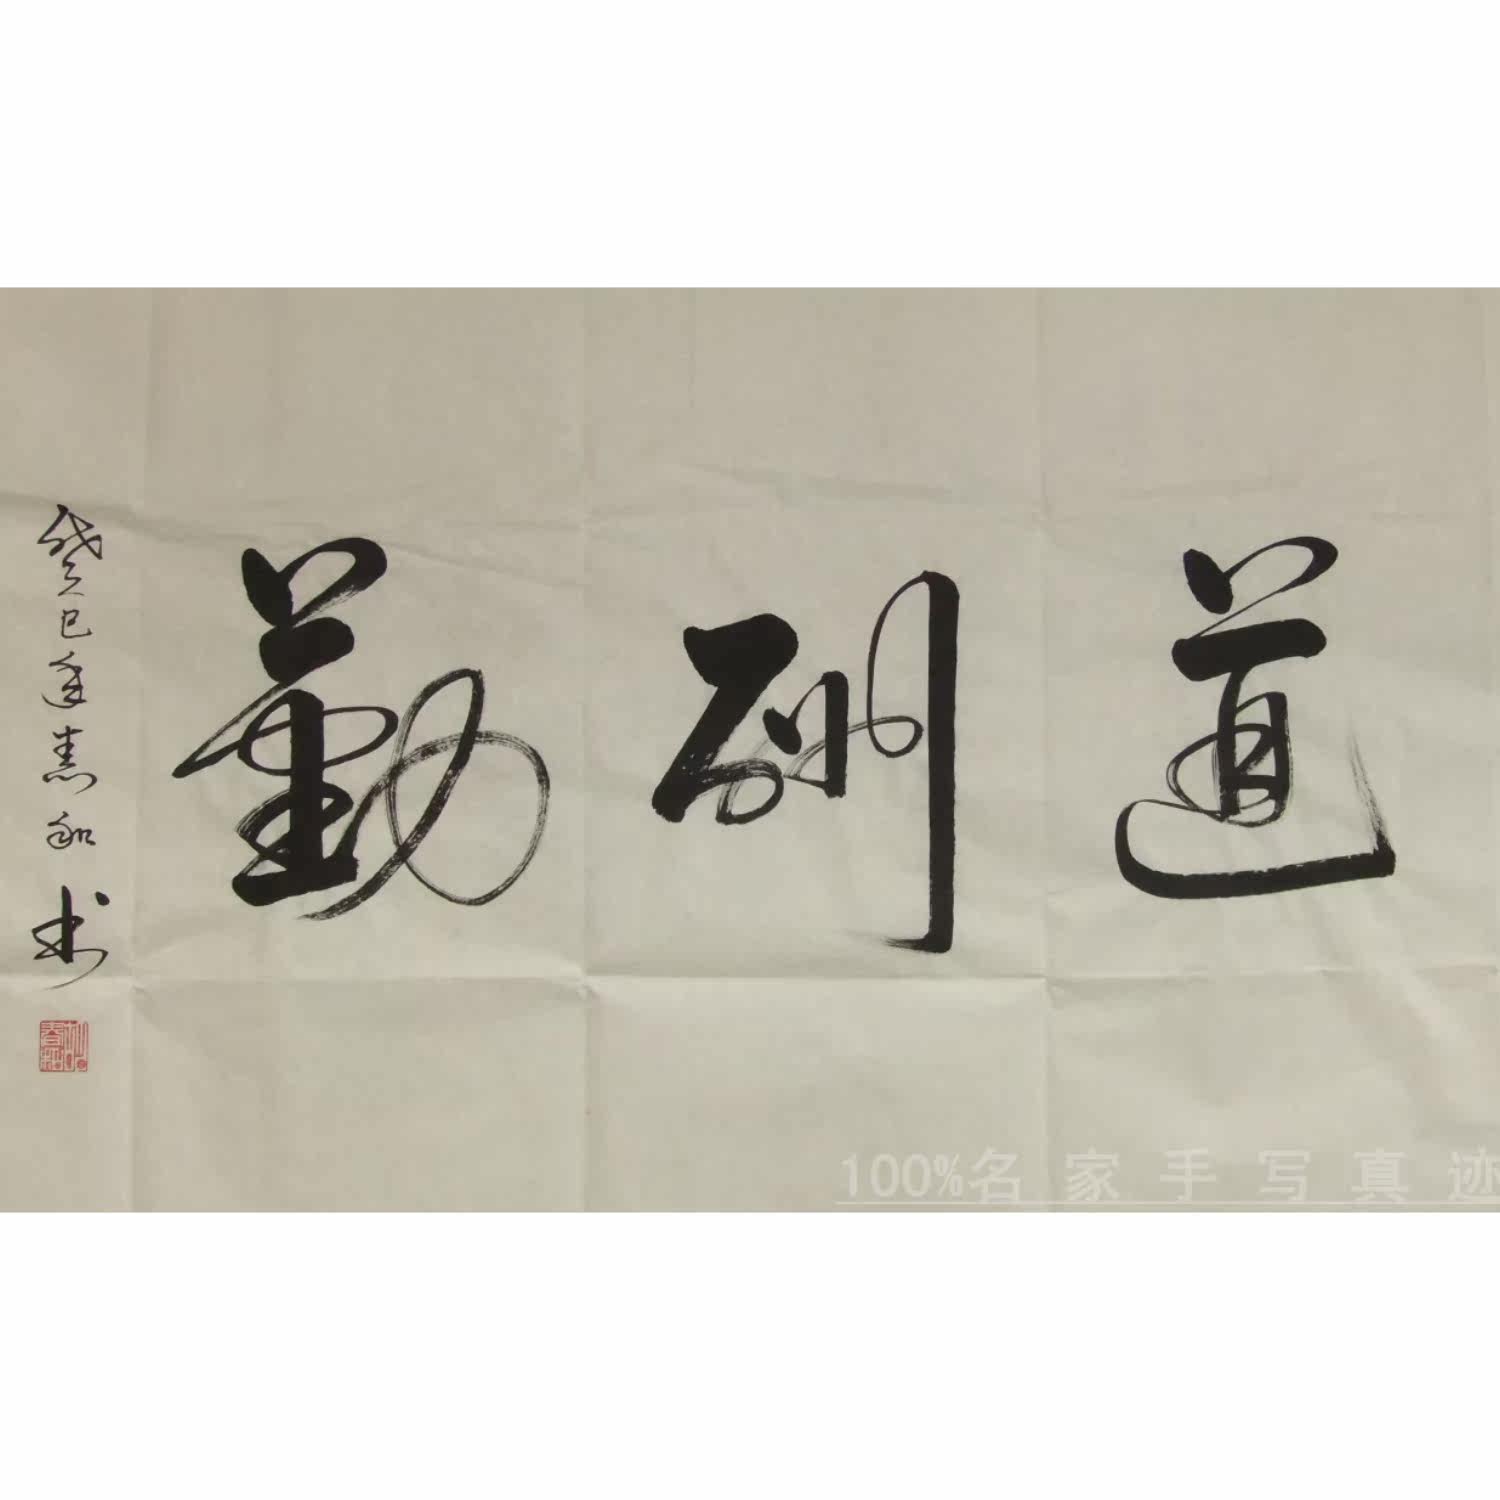 道酬勤
癸巳年春和书
100%名家手写真迹